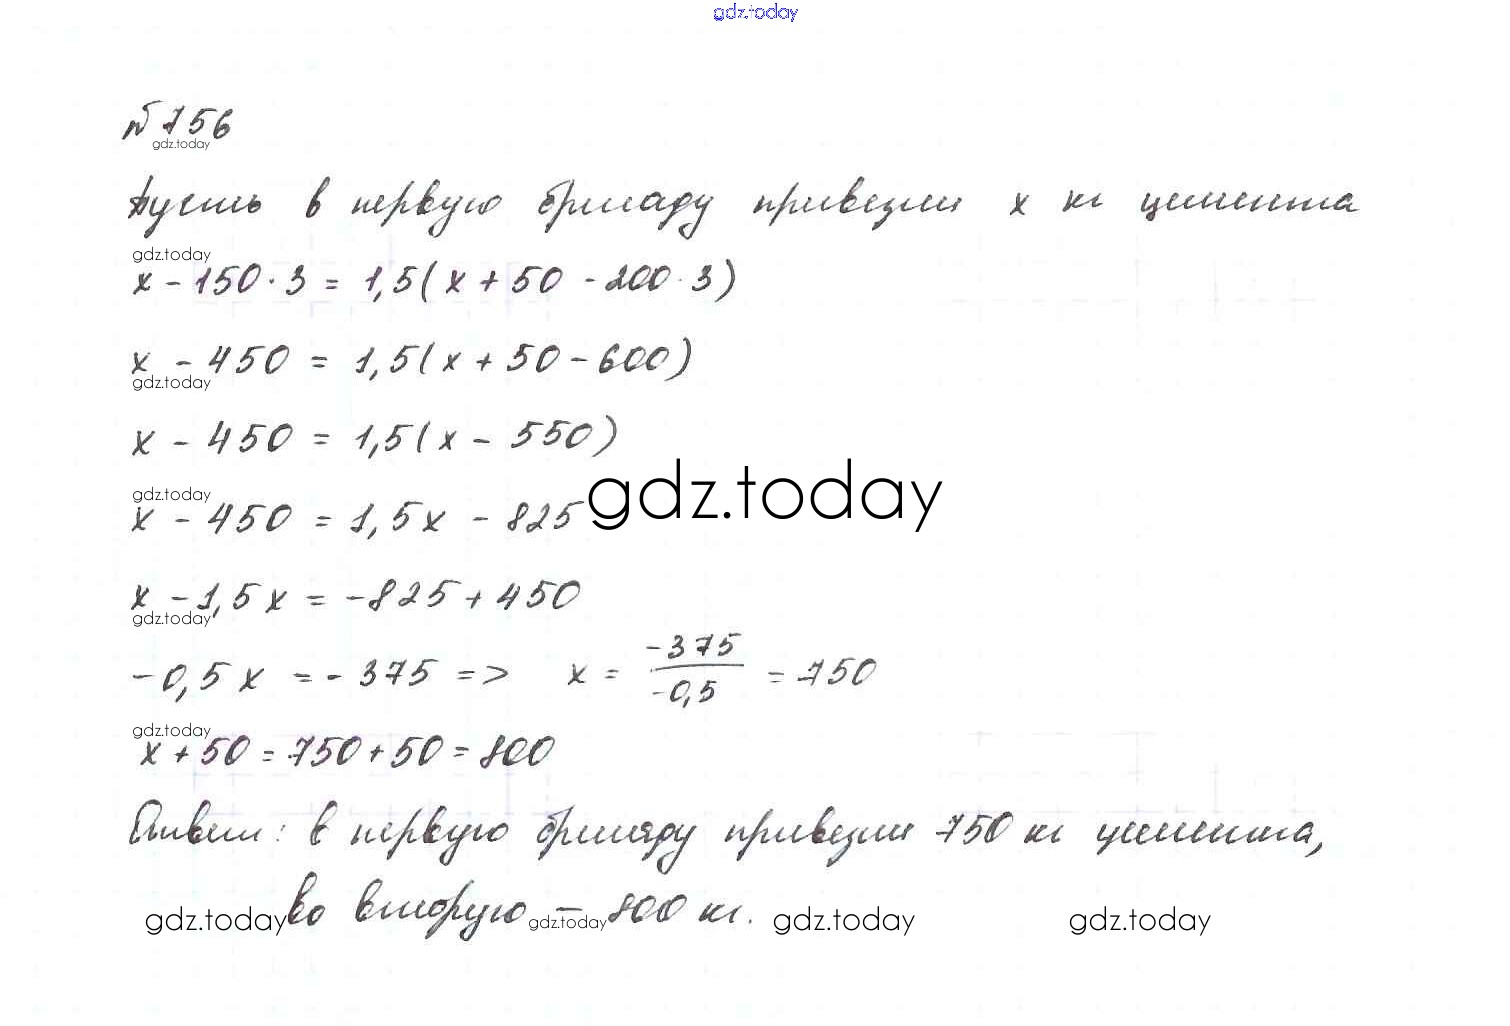 gdz.today
№ 756
gdz.today
Пусть в первую бригаду привезли x кг цемента
gdz.today
x - 150 · 3 = 1,5(x + 50 - 200 · 3)
x - 450 = 1,5(x + 50 - 600)
gdz.today
x - 450 = 1,5(x - 550)
gdz.today
gdz.today
x - 450 = 1,5x - 825
x - 1,5x = -825 + 450
gdz.today
-0,5x = -375 => x = -375/-0,5 = 750
gdz.today
x + 50 = 750 + 50 = 800
Ответ: в первую бригаду привезли 750 кг цемента,
во вторую - 800 кг.
gdz.today gdz.today gdz.today gdz.today